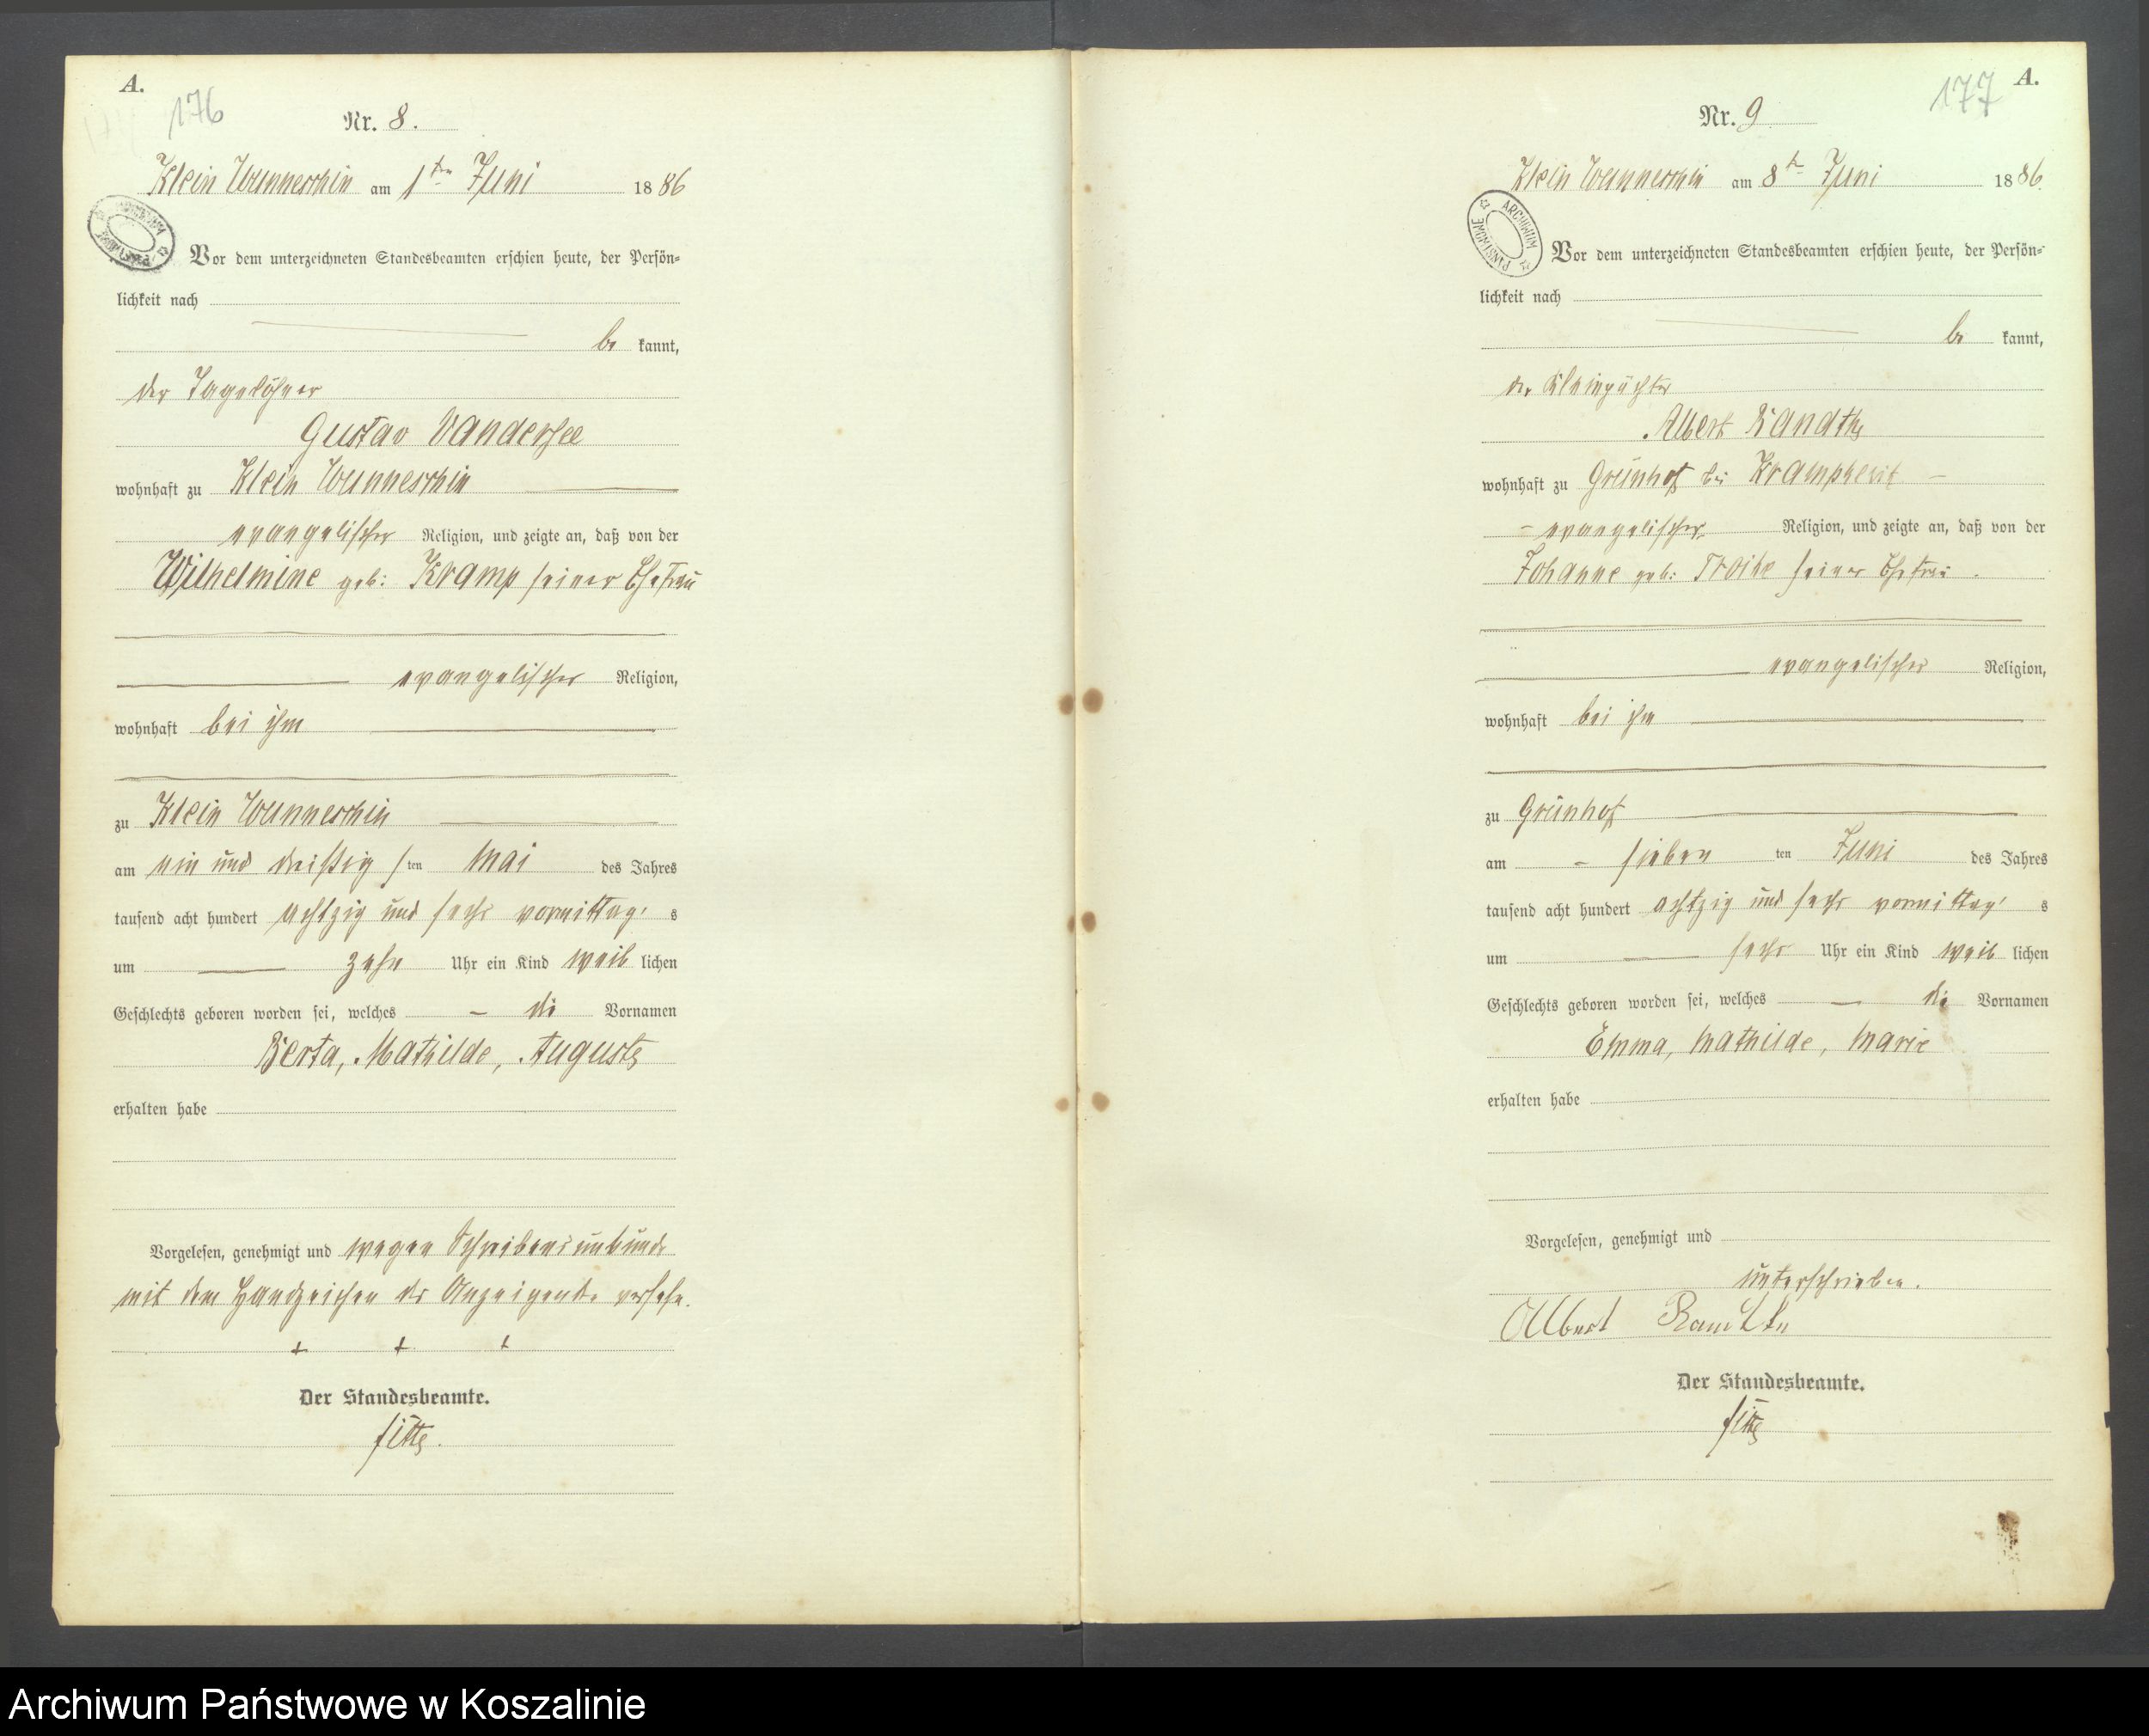 A.
176
Nr. 8.
Klein Wunneschin am 1ten Juni 1886
Vor dem unterzeichneten Standesbeamten erschien heute, der Persön=
lichkeit nach
be kannt,
der Tagelöhner
Gustav Vandersee
wohnhaft zu Klein Wunneschin
evangelischer Religion, und zeigte an, daß von der
Wilhelmine geb: Kramp seiner Ehefrau
evangelischer Religion,
wohnhaft bei ihm
zu Klein Wunneschin
am ein und dreißig sten Mai des Jahres
tausend acht hundert achtzig und sechs vormittags
um zehn Uhr ein Kind weib lichen
Geschlechts geboren worden sei, welches die Vornamen
Berta, Mathilde, Auguste
erhalten habe
Vorgelesen, genehmigt und wegen Schreibensunkunde
mit dem Handzeichen des Anzeigenden versehen.
+ + +
Der Standesbeamte.
ARCHIWUM PAŃSTWOWE
A.
177
Nr. 9
Klein Wunneschin am 8ten Juni 1886.
Vor dem unterzeichneten Standesbeamten erschien heute, der Persön=
lichkeit nach
be kannt,
der Kleinpächter
Albert Randthe
wohnhaft zu Grünhof bei Krampkewitz
evangelischer Religion, und zeigte an, daß von der
Johanne geb: Troike seiner Ehefrau.
evangelischer Religion,
wohnhaft bei ihm
zu Grünhof
am sieben ten Juni des Jahres
tausend acht hundert achtzig und sechs vormittags
um sechs Uhr ein Kind weib lichen
Geschlechts geboren worden sei, welches die Vornamen
Emma, Mathilde, Marie
erhalten habe
Vorgelesen, genehmigt und
unterschrieben.
Albert
Der Standesbeamte.
ARCHIWUM PAŃSTWOWE
Archiwum Państwowe w Koszalinie